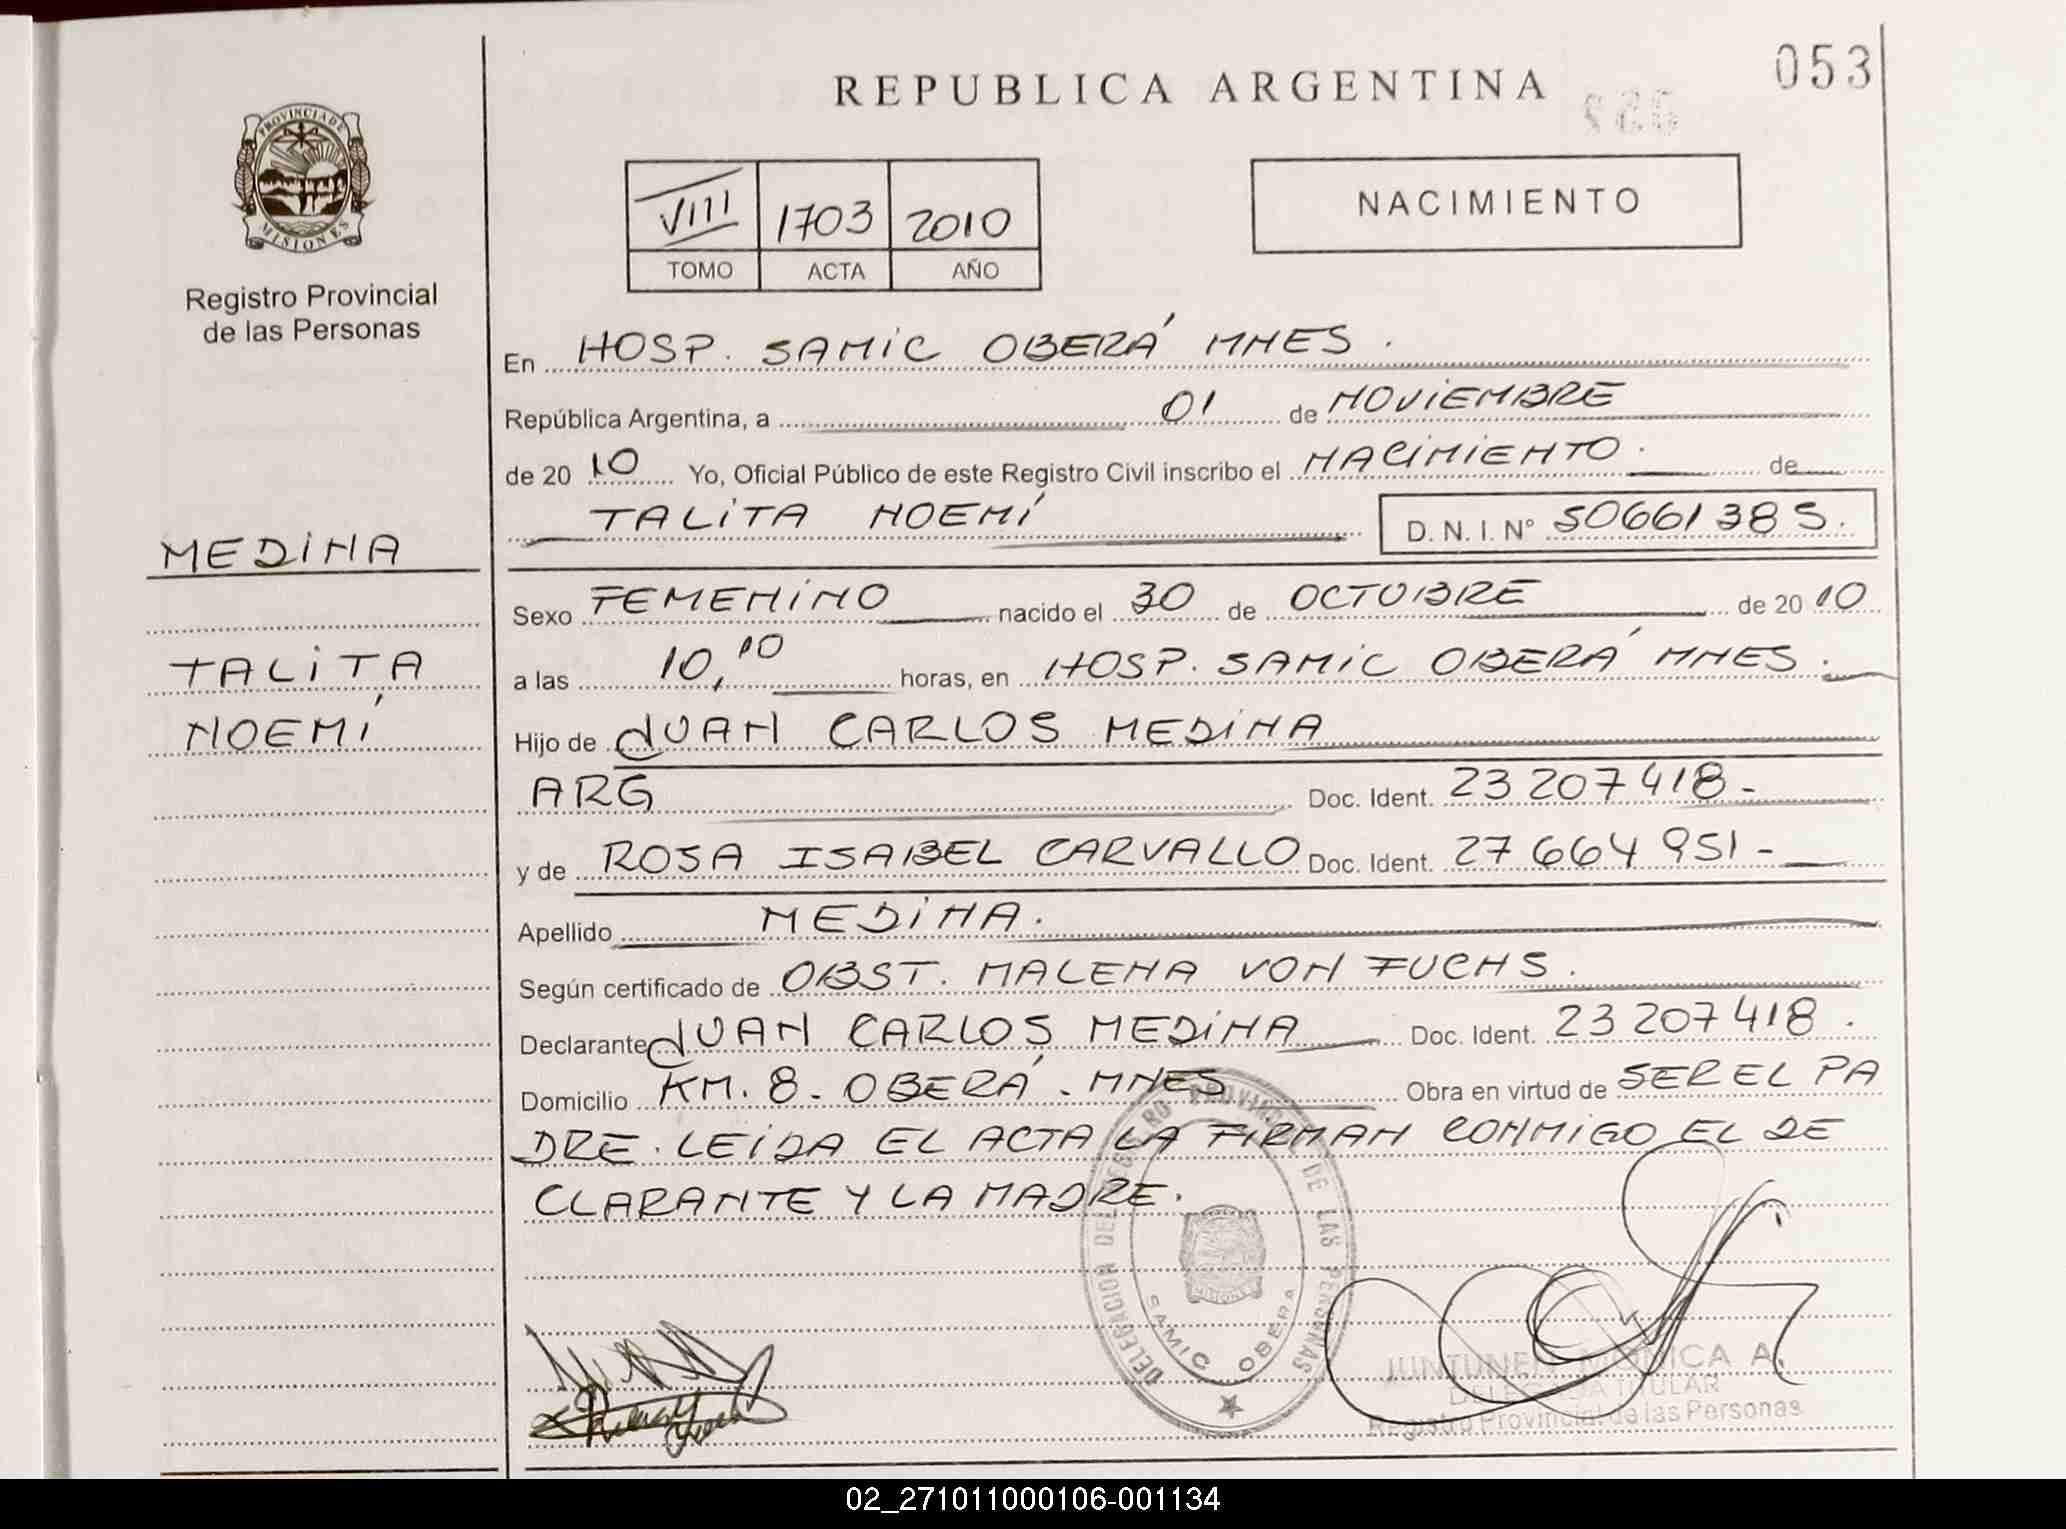 053
REPUBLICA ARGENTINA
PROVINCIA DE
MISIONES
Registro Provincial
de las Personas
VIII 1703 2010
TOMO ACTA AÑO
NACIMIENTO
En HOSP. SAMIC OBERÁ MNES.
República Argentina, a 01 de NOVIEMBRE
de 2010 Yo, Oficial Público de este Registro Civil inscribo el NACIMIENTO. de
TALITA NOEMÍ D. N. I. N° 50661385.
MEDINA
TALITA
NOEMÍ
Sexo FEMENINO nacido el 30 de OCTUBRE de 2010
a las 10,10 horas, en HOSP. SAMIC OBERÁ MNES.
Hijo de JUAN CARLOS MEDINA
ARG Doc. Ident. 23 207 418-
y de ROSA ISABEL CARVALLO Doc. Ident. 27 664 951-
Apellido MEDINA.
Según certificado de OBST. MALENA VON FUCHS.
Declarante JUAN CARLOS MEDINA Doc. Ident. 23 207 418.
Domicilio KM. 8 - OBERÁ - MNES Obra en virtud de SER EL PA
DRE. LEIDA EL ACTA LA FIRMAN CONMIGO EL DE
CLARANTE Y LA MADRE.
DELEGACION DEL REGISTRO PROVINCIAL DE LAS PERSONAS
MISIONES
SAMIC OBERA
JUNTUNEN MONICA A.
DELEGADA TITULAR
Registro Provincial de las Personas
02_271011000106-001134